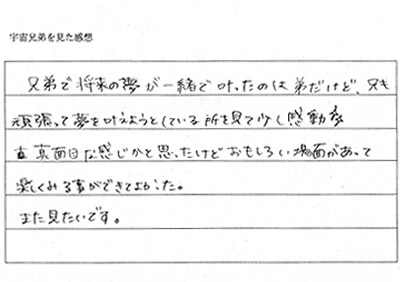 宇宙兄弟を見た感想
兄弟で将来の夢が一緒で叶ったのは弟だけど、兄も
頑張って夢を叶えようとしている所を見て少し感動
真面目な感じかと思ったけどおもしろい場面があって
楽しくみる事ができてよかった。
また見たいです。